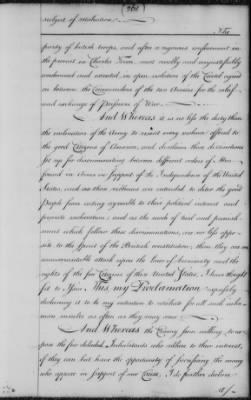 subject of retaliation.
party of british troops, and after a rigorous confinement in
the provost in Charles Town most cruelly and unjustifiably
condemned and executed in open violation of the Cartel agreed
on between the Commanders of the two Armies for the relief
and exchange of Prisoners of War.
And Whereas it is no less the duty than
the inclination of the Army to resent every violence offered to
the good Citizens of America, and to discern those distinctions
for discriminating between different orders of Men
found in Arms in Support of the Independence of the United
States, and as these violences are intended to deter the good
People from acting agreeable to their political interest and
private inclinations; and as the mode of trial and punish
ment which follow these discriminations, are no less oppo
site to the Spirit of the British constitution, than they are an
unwarrantable attack upon the laws of humanity and the
rights of the free Citizens of these United States, I have thought
fit to Issue This my Proclamation expressly
declaring it to be my intention to retaliate for all such inhu
man insults as often as they may occur.
And Whereas the Enemy seem willing to ex
pose the few deluded Individuals who adhere to their interest,
if they can but have the opportunity of sacrificing the many
who appear in Support of our Cause, I do further declare